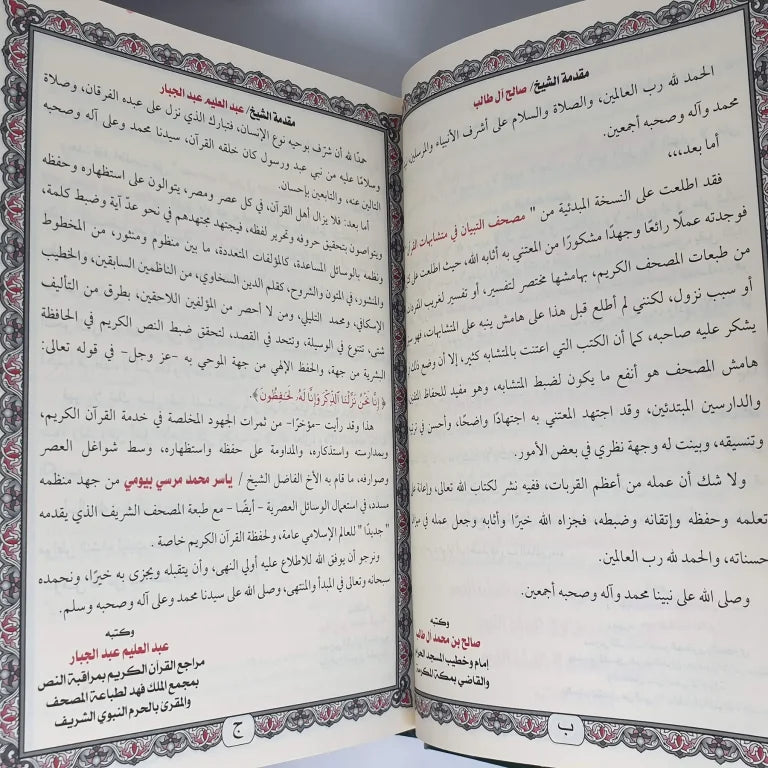 مقدمة الشيخ/ صالح آل طالب
الحمد لله رب العالمين، والصلاة والسلام على أشرف الأنبياء والمرسلين
محمد وآله وصحبه أجمعين.
أما بعد،،،
فقد اطلعت على النسخة المبدئية من " مصحف التبيان في متشابهات
فوجدته عملًا رائعًا وجهدًا مشكورًا من المعتني به أثابه الله، حيث اطلعت على
من طبعات المصحف الكريم، بهامشها مختصر لتفسير، أو تفسير لغريب
أو سبب نزول، لكنني لم أطلع قبل هذا على هامش ينبه على المتشابهات، فهو
يشكر عليه صاحبه، كما أن الكتب التي اعتنت بالمتشابه كثير، إلا أن وضع ذلك
هامش المصحف هو أنفع ما يكون لضبط المتشابه، وهو مفيد للحفاظ
والدارسين المبتدئين، وقد اجتهد المعتني به اجتهادًا واضحًا، وأحسن في
وتنسيقه، وبينت له وجهة نظري في بعض الأمور.
ولا شك أن عمله من أعظم القربات، ففيه نشر لكتاب الله تعالى، وإعانة
تعلمه وحفظه وإتقانه وضبطه، فجزاه الله خيرًا وأثابه وجعل عمله في
حسناته، والحمد لله رب العالمين.
وصلى الله على نبينا محمد وآله وصحبه أجمعين.
وكتبه
صالح بن محمد آل طالب
إمام وخطيب المسجد
والقاضي بمكة
ب
مقدمة الشيخ/ عبد العليم عبد الجبار
حمدًا لله أن شرّف بوحيه نوع الإنسان، فتبارك الذي نزل على عبده الفرقان، وصلاة
وسلامًا عليه من نبي عبد ورسول كان خلقه القرآن، سيدنا محمد وعلى آله وصحبه
التالين عنه، والتابعين بإحسان.
أما بعد: فلا يزال أهل القرآن، في كل عصر ومصر، يتوالون على استظهاره وحفظه
ويتواصون بتحقيق حروفه وتحرير لفظه، فيجتهد مجتهدهم في نحو عدّ آية وضبط كلمة،
ونظمه بالوسائل المساعدة، كالمؤلفات المتعددة، ما بين منظوم ومنثور، من المخطوط
والمنشور، في المتون والشروح، كقلم الدين السخاوي، من الناظمين السابقين، والخطيب
الإسكافي، ومحمد التليلي، ومن لا أحصر من المؤلفين اللاحقين، بطرق من التأليف
شتى، تتنوع في الوسيلة، وتتحد في القصد، لتحقق ضبط النص الكريم في الحافظة
البشرية من جهة، والحفظ الإلهي من جهة الموحي به -عز وجل- في قوله تعالى:
﴿إِنَّا نَحْنُ نَزَّلْنَا ٱلذِّكْرَ وَإِنَّا لَهُۥ لَحَـٰفِظُونَ﴾.
هذا وقد رأيت -مؤخرًا- من ثمرات الجهود المخلصة في خدمة القرآن الكريم،
وبمدارسته واستذكاره، والمداومة على حفظه واستظهاره، وسط شواغل العصر
وصوارفه، ما قام به الأخ الفاضل الشيخ / ياسر محمد مرسي بيومي من جهد منظمه
مسدد، في استعمال الوسائل العصرية - أيضًا - مع طبعة المصحف الشريف الذي يقدمه
"جديدًا" للعالم الإسلامي عامة، ولحفظة القرآن الكريم خاصة .
ونرجو أن يوفق الله للاطلاع عليه أولي النهى، وأن يتقبله ويجزي به خيرًا، ونحمده
سبحانه وتعالى في المبدأ والمنتهى، وصلى الله على سيدنا محمد وعلى آله وصحبه وسلم.
وكتبه
عبد العليم عبد الجبار
مراجع القرآن الكريم بمراقبة النص
بمجمع الملك فهد لطباعة المصحف
والمقرئ بالحرم النبوي الشريف
ج